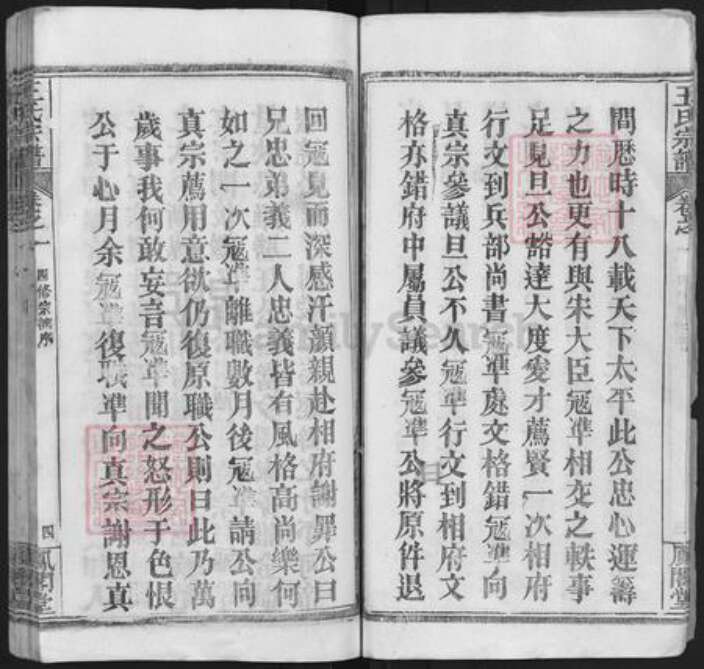 間歷時十八載天下太平此公忠心運籌
之力也更有與宋大臣冦準相交之軼事
足見旦公豁達大度愛才薦賢一次相府
行文到兵部尚書冦準處文格錯冦準向
真宗參議旦公不久冦準行文到相府文
格亦錯府中屬員議參冦準公將原件退
回冦見而深感汗顏親赴相府謝罪公曰
兄忠弟義二人忠義皆有風格高尚樂何
如之一次冦準離職數月後冦準請公向
真宗薦用意欲仍復原職公則曰此乃萬
歲事我何敢妄言冦準聞之怒形于色恨
公于心月余冦準復職準向真宗謝恩真
王氏宗譜
卷之一
四修宗譜序
四
鳳閣堂
FamilySearch